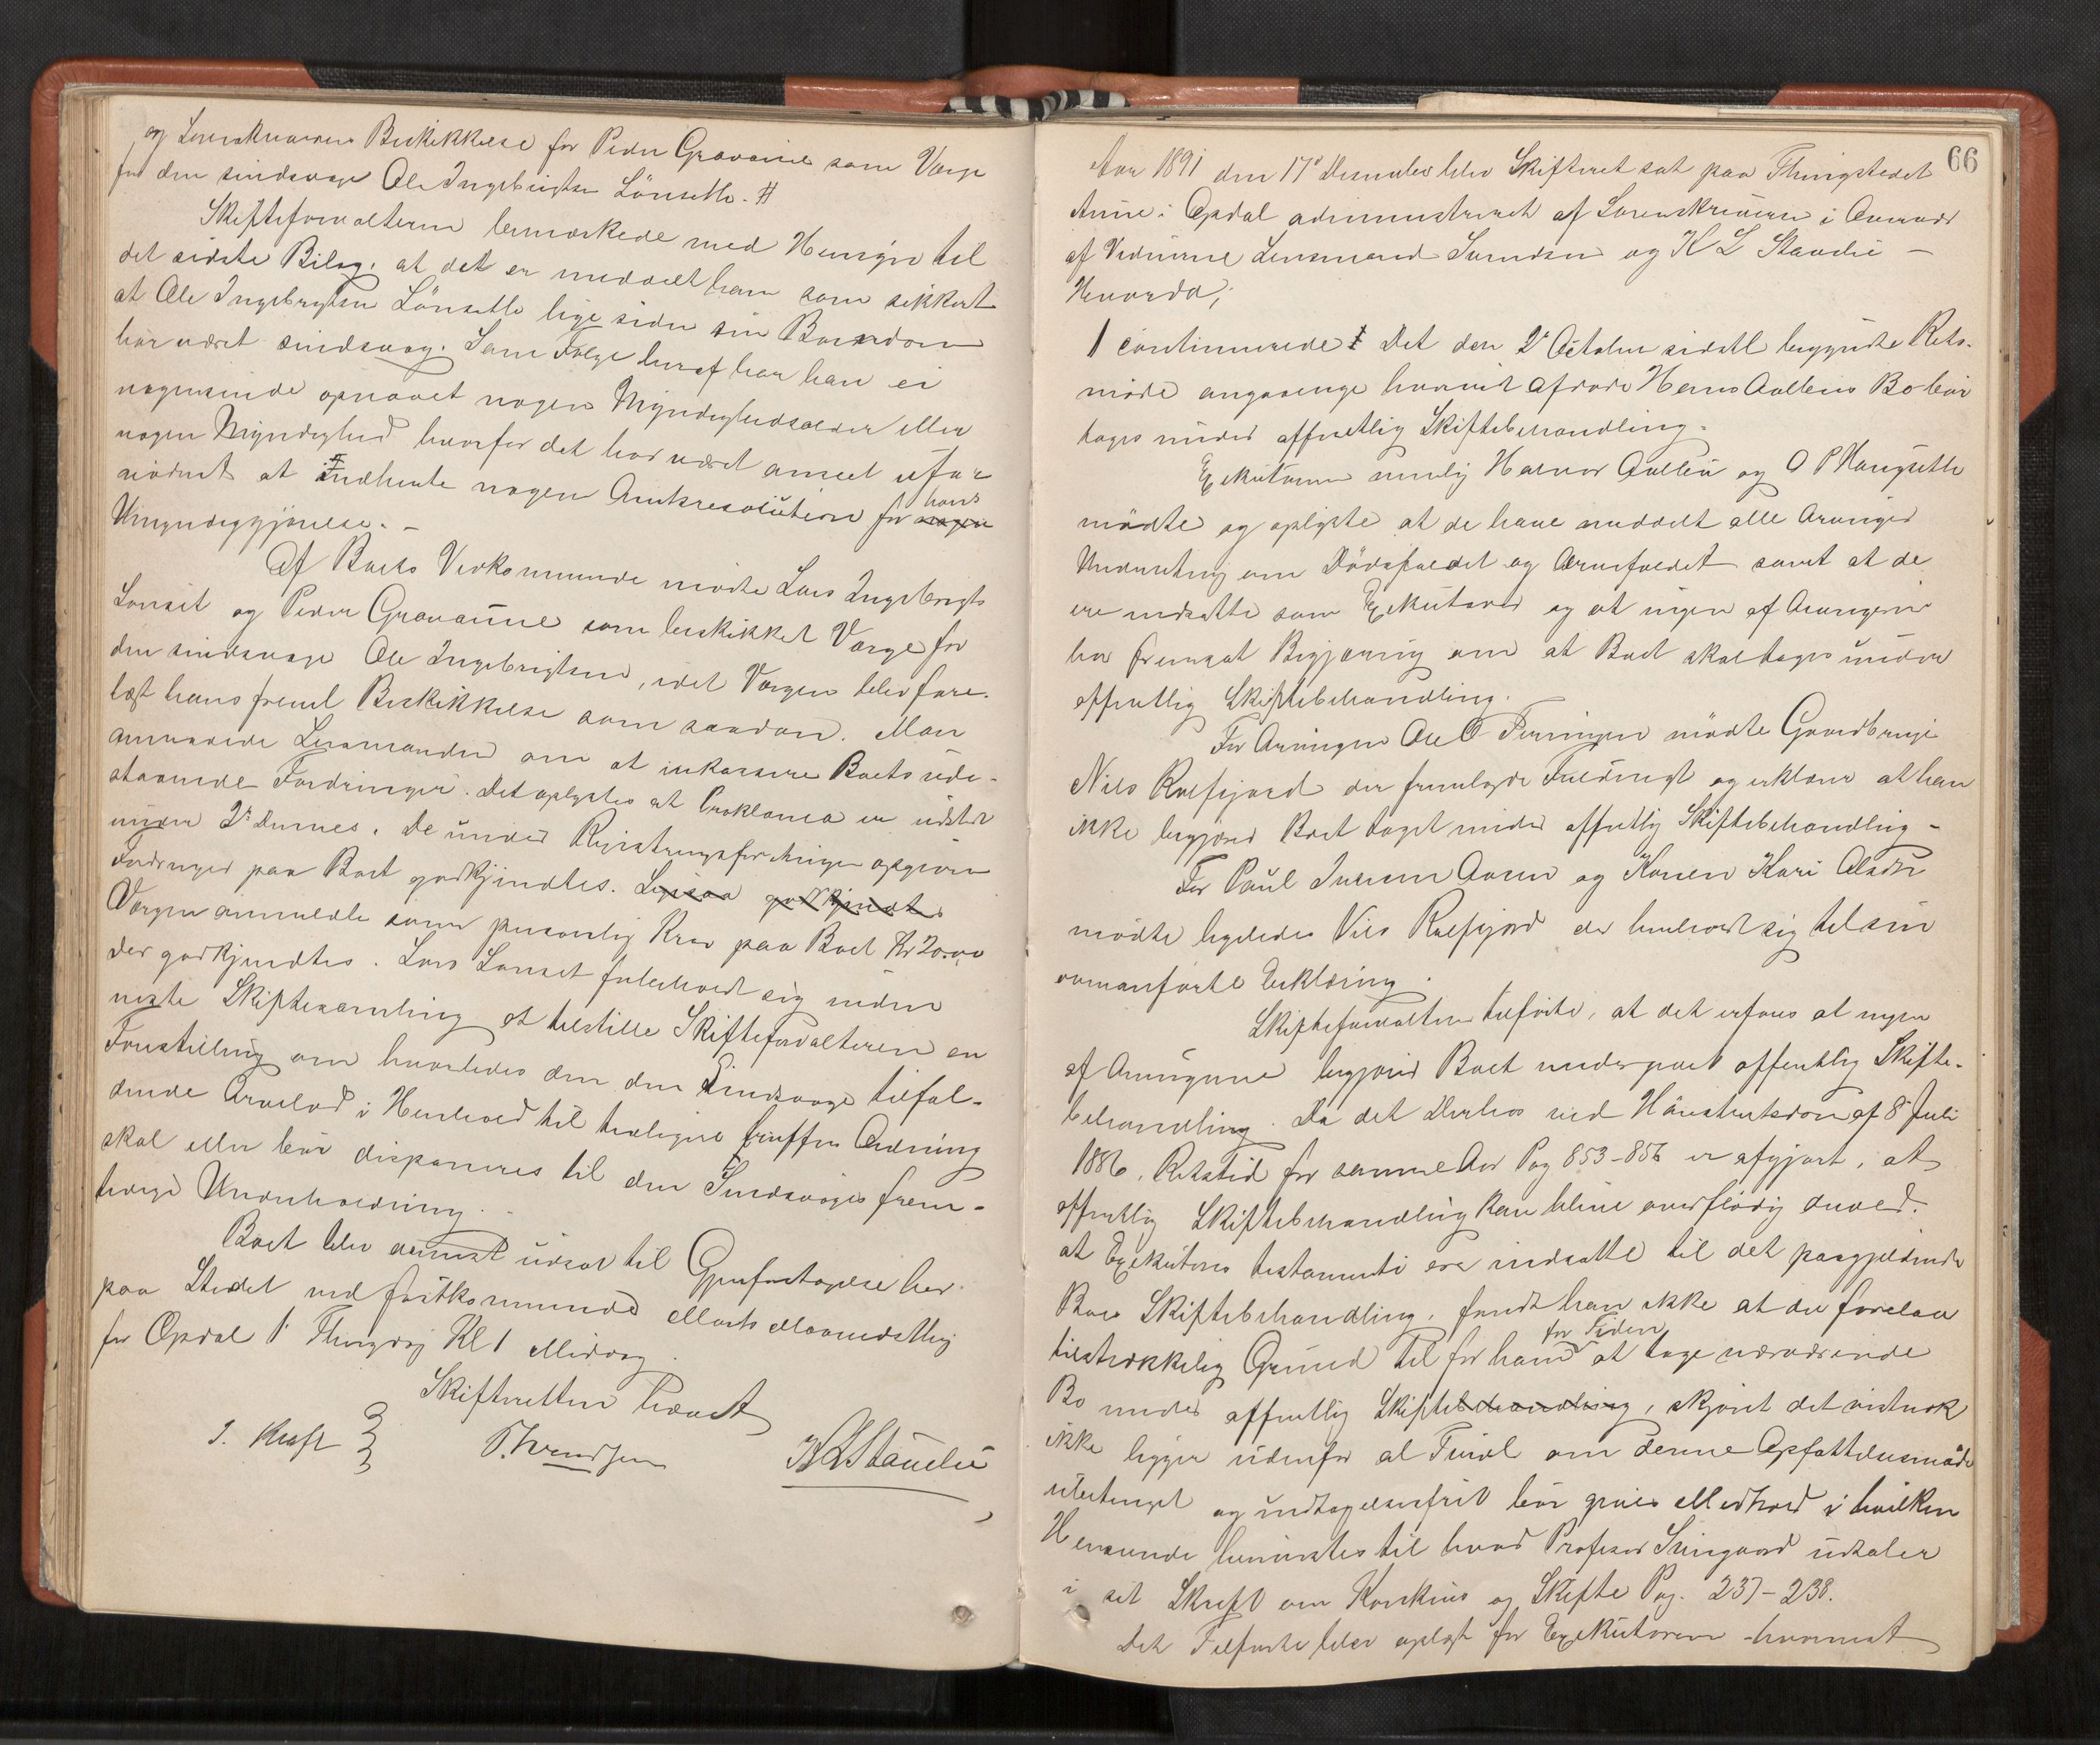 og Sorenskriverens Beskikkelse for Peder Gravaune som Værge
for den sindsvage Ole Ingebrigtsen Lönsetb. #
Skifteforvalteren bemærkede med Hensyn til
det sidste Bilag, at det er meddelt ham som sikkert
at Ole Ingebrigtsen Lönsetb lige siden sin Barndom
har været sindsvag. Som Følge heraf har han ei
nogensinde opnaaet nogen Myndighedsalder eller
nogen Myndighed hvorfor det har været anseet ufor
nödent at indhente nogen Amtsresolution for nogen hans
Umyndiggjörelse. -
Af Boets Vedkommende mödte Lars Ingebrigts
Lönset og Peder Gravaune som beskikket Værge for
den sindsvage Ole Ingebrigtsen, idet Værgen blev fore-
læst hans freml Beskikkelse som saadan. Man
anmodede Lensmanden om at inkassere Boets ude-
staaende Fordringer. Det oplystes at Proklama er udstedt
under 2den dennes. De under Registreringsforretningen opgivne
Fordringer paa Boet godkjendtes. Ligesaa godkjendtes
Værgen anmeldte som personlig Krav paa Boet Kr 20.00
der godkjendtes. Lars Lönset forbeholdt sig inden
neste Skiftesamling at tilstille Skifteforvalteren en
Forestilling om hvorledes den den Sindsvage tilfal-
dende Arvelod i Henhold til tidligere truffen Ordning
skal eller bör disponeres til den Sindsvages frem-
tidige Underholdning. -
Boet blev dernæst udsat til Gjenforetagelse her
paa Stedet ved förstkommende Marts Maanedsthing
for Opdal 1 Thingdag Kl 1 Middag.
Skifteretten hævet
J. Kraft T. Svendsen K L Staulie
66
Aar 1891 den 17de December blev Skifteret sat paa Thingstedet
Aune i Opdal administreret af Sorenskriveren i Overvær
af Vidnerne Lensmand Svendsen og K L Staulie -
Hvorda;
1 continuerede Det den 2den October sidstl begyndte Rets-
möde angaaende hvorvidt afdöde Hans Aalbus Bo bör
tages under offentlig Skiftebehandling.
Exekutorerne nemlig Halvor Aalbu og O P Haugsetb
mödte og oplyste at de have meddelt alle Arvinger
Underretning om Dödsfaldet og Arvefaldet samt at de
ere indsatte som Exekutorer og at ingen af Arvingerne
har fremsat Begjæring om at Boet skal tages under
offentlig Skiftebehandling.
For Arvingen Ole O Forningen mödte Gaardbruger
Nils Kvefsjord der fremlagde Fuldmagt og erklærer at han
ikke begjærer Boet taget under offentlig Skiftebehandling -
For Paul Iversen Aaen og Konen Kari Olsdtr
mödte ligeledes Nils Kvefsjord der henholdt sig til sin
ovenanförte Erklæring.
Skifteforvalteren tilförte, at det erfares at ingen
af Arvingerne begjærer Boet undergivet offentlig Skifte-
behandling. Da det derhos ved Höiesteretsdom af 8de Juli
1886, Retstid for samme Aar Pag 853-856 er afgjort, at
offentlig Skiftebehandling kan blive overflödig derved
at Exekutores testamenti ere indsatte til det paagjældende
Boes Skiftebehandling, fandt han ikke at der forelaa
tilstrækkelig Grund til for ham for Tiden at tage nærværende
Bo under offentlig Skiftebehandling, skjönt det vistnok
ikke ligger udenfor al Tvivl om denne Opfattelsesmaade
ubetinget og undtagelsesfrit bör gives Medhold i hvilken
Henseende henvistes til hvad Professor Svingaard udtaler
i sit Skrift om Konkurs og Skifte Pag. 237-238.
Det Tilförte blev oplæst for Exekutorerne hvornæst